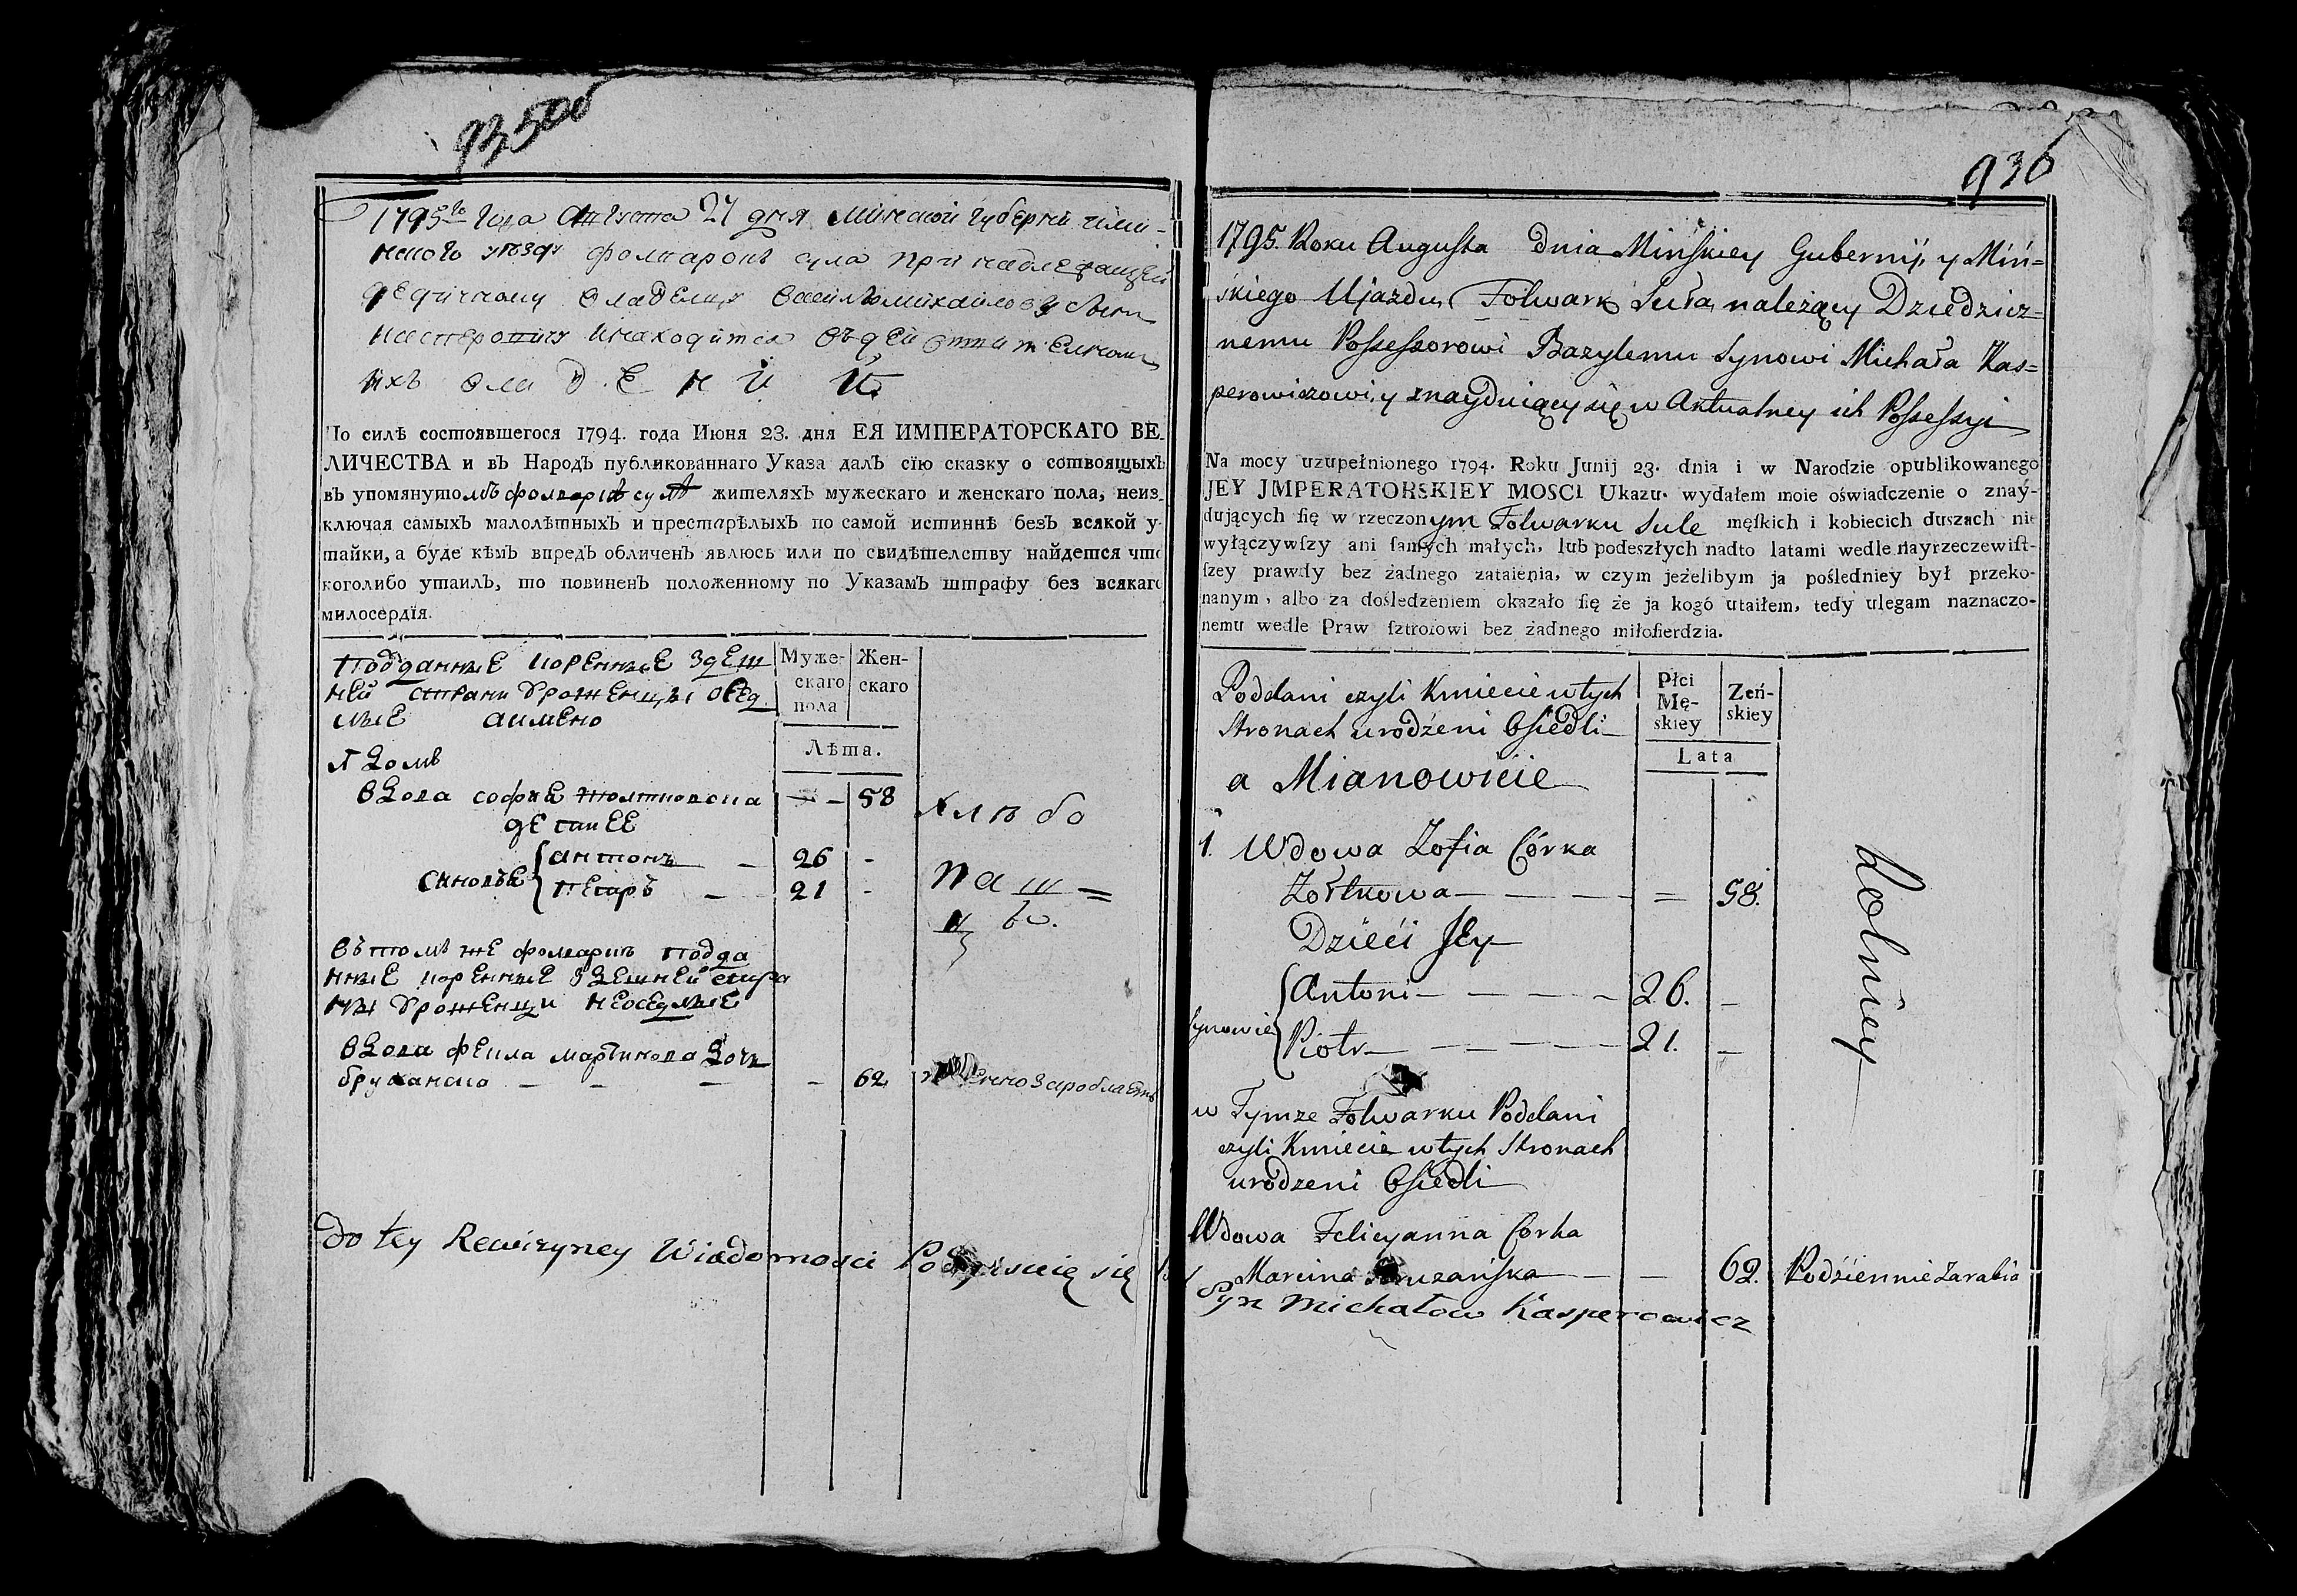 935об
1795го года Августа 27 дня Минской губернии и Мин-
ского уезду фольварокъ сула принадлежащей
дедичному владельцу Василью михайлову сыну
Касперовичу инаходится въдействительномъ
ихъ владении
По силѣ состоявшегося 1794. года Июня 23. дня ЕЯ ИМПЕРАТОРСКАГО ВЕ-
ЛИЧЕСТВА и въ Народъ публикованнаго Указа далъ сїю сказку о сотвоящыхъ
въ упомянутомъ фольваркѣ сулѣ жителяхъ мужескаго и женскаго пола, неиз-
ключая самыхъ малолѣтныхъ и престарѣлыхъ по самой истиннѣ безъ всякой у-
тайки, а буде кѣмъ впредъ обличенъ явлюсь или по свидѣтелству найдется что
коголибо утаилъ, то повиненъ положенному по Указамъ штрафу без всякаго
милосердїя.
Подданные коренные здеш
ней страни урожєнцы осед
лые аимено
Муже-
скаго
пола
Жен-
скаго
Лѣта.
1 домъ
вдова софия — — 58
дети ЕЕ
синовья { антонъ — 26 -
петръ — 21 -
хлѣбо
паш=
цы
втомъ же фольварку подда
нные коренные здешней стра
ны урожєнци неоседлые
вдова Фєила мартинова дочь
— — — — 62 заробляетъ
do tey Rewizyney Wiadomosci Podpisuię się

936
1795. Roku Augusta dnia Mińskiey Gubernij, y Miń=
skiego Ujazdu, Folwark Suła, należący Dziedzicz=
nemu Possessorowi Bazylemu Synowi Michała Kas=
perowiczowi, y znayduiący się w Aktualney ich Possessyi
Na mocy uzupełnionego 1794. Roku Junij 23. dnia i w Narodzie opublikowanego
JEY JMPERATORSKIEY MOSCI Ukazu. wydałem moie oświadczenie o znay-
dujących się w rzeczonym Folwarku Sule męſkich i kobiecich duszach nie
wyłączywſzy ani ſamych małych, lub podeszłych nadto latami wedle nayrzeczewiſt-
ſzey prawdy bez żadnego zataienia, w czym jeżelibym ja pośledniey był przeko-
nanym, albo za dośledzeniem okazało ſię że ja kogó utaiłem, tedy ulegam naznaczo-
nemu wedle Praw ſztrofowi bez żadnego miłoſierdzia.
Poddani czyli Kmiecie w tych
Stronach urodźeni Osiedli
a Mianowicie
Płci
Mę-
skiey
Zeń-
skiey
Lata
1. Wdowa Zofia Córka
Żołtkowa — — — = 58.
Dzieći Jey
Synowie { Antoni — — — 26. —
Piotr — — — 21. —
Rolniey
w Tymze Folwarku Poddani
czyli Kmiecie w tych Stronach
urodzeni Osiedli
Wdowa Felicyanna Corka
Marcina — — 62. Podźiennie Zarabia
Syn Michałow Kasperowicz